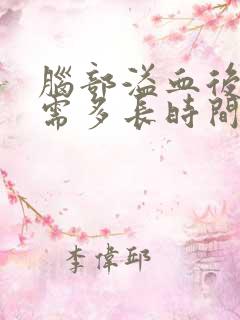 腦部溢血後
需多長時間
李偉邱